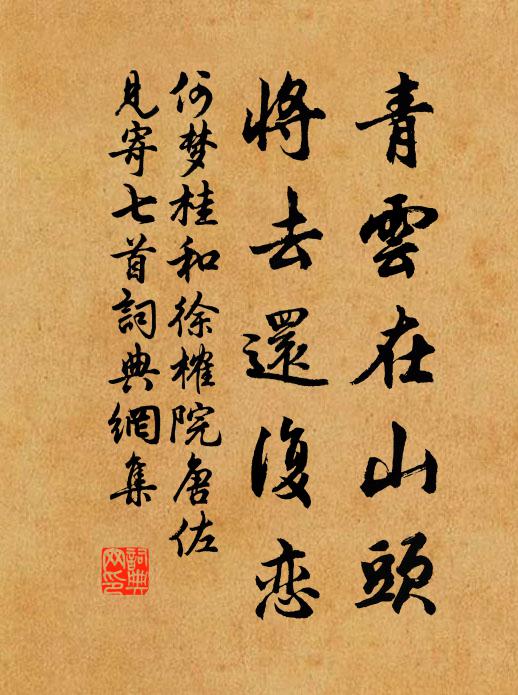 青雲在山頭
將去還復恋
何梦桂和徐榷院唐佐
見寄七首詞典網集
詞典
网印